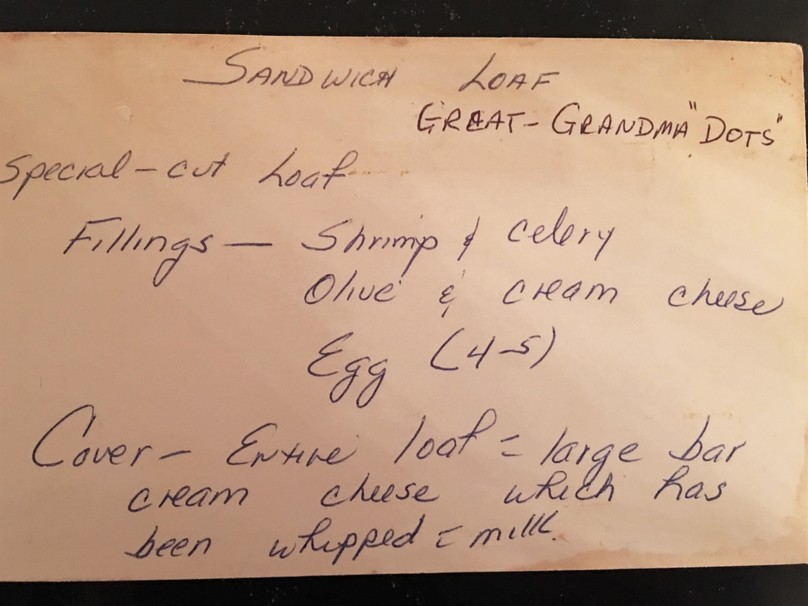 SANDWICH LOAF
GREAT-GRANDMA "DOTS"
Special-cut Loaf
Fillings — Shrimp & celery
Olive & cream cheese
Egg (4-5)
Cover — Entire loaf = large bar
cream cheese which has
been whipped = milk.